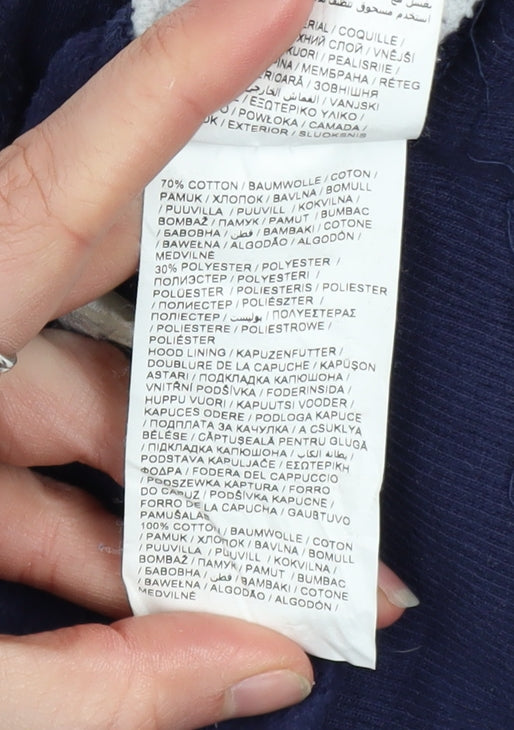 استخدم مسحوق
RIAL / COQUILLE /
ХНИЙ СЛОЙ / VNĚJŠÍ
KUORI / PEALISRIIE /
INA / МЕМБРАНА / RÉTEG
ERIOARĂ / ЗОВНІШНЯ
/ VANJSKI
O / ΕΞΩΤΕΡΙΚΟ ΥΛΙΚΟ /
O / POWŁOKA / CAMADA /
OK / EXTERIOR / SLUOKSNIS
70% COTTON / BAUMWOLLE / COTON /
PAMUK / ХЛОПОК / BAVLNA / BOMULL
/ PUUVILLA / PUUVILL / KOKVILNA /
BOMBAŽ / ПАМУК / PAMUT / BUMBAC
/ БАВОВНА / قطن / ΒΑΜΒΑΚΙ / COTONE
/ BAWEŁNA / ALGODÃO / ALGODÓN /
MEDVILNĖ
30% POLYESTER / POLYESTER /
ПОЛИЭСТЕР / POLYESTERI /
POLÜESTER / POLIESTERIS / POLIESTER
/ ПОЛИЕСТЕР / POLIÉSZTER /
ПОЛІЕСТЕР / بوليستر / ΠΟΛΥΕΣΤΕΡΑΣ
/ POLIESTERE / POLIESTROWE /
POLIÉSTER
HOOD LINING / KAPUZENFUTTER /
DOUBLURE DE LA CAPUCHE / KAPÜŞON
ASTARI / ПОДКЛАДКА КАПЮШОНА /
VNITŘNÍ PODŠÍVKA / FODERINSIDA /
HUPPU VUORI / KAPUUTSI VOODER /
KAPUCES ODERE / PODLOGA KAPUCE
/ ПОДПЛАТА ЗА КАЧУЛКА / A CSUKLYA
BÉLÉSE / CĂPTUȘEALĂ PENTRU GLUGĂ
/ ПІДКЛАДКА КАПЮШОНА / بطانة الكاب /
PODSTAVA KAPULJAČE / ΕΣΩΤΕΡΙΚΗ
ΦΟΔΡΑ / FODERA DEL CAPPUCCIO
/ PODSZEWKA KAPTURA / FORRO
DO CAPUZ / PODŠÍVKA KAPUCNE /
FORRO DE LA CAPUCHA / GAUBTUVO
PAMUŠALAS
100% COTTON / BAUMWOLLE / COTON
/ PAMUK / ХЛОПОК / BAVLNA / BOMULL
/ PUUVILLA / PUUVILL / KOKVILNA /
BOMBAŽ / ПАМУК / PAMUT / BUMBAC
/ БАВОВНА / قطن / ΒΑΜΒΑΚΙ / COTONE
/ BAWEŁNA / ALGODÃO / ALGODÓN /
MEDVILNĖ